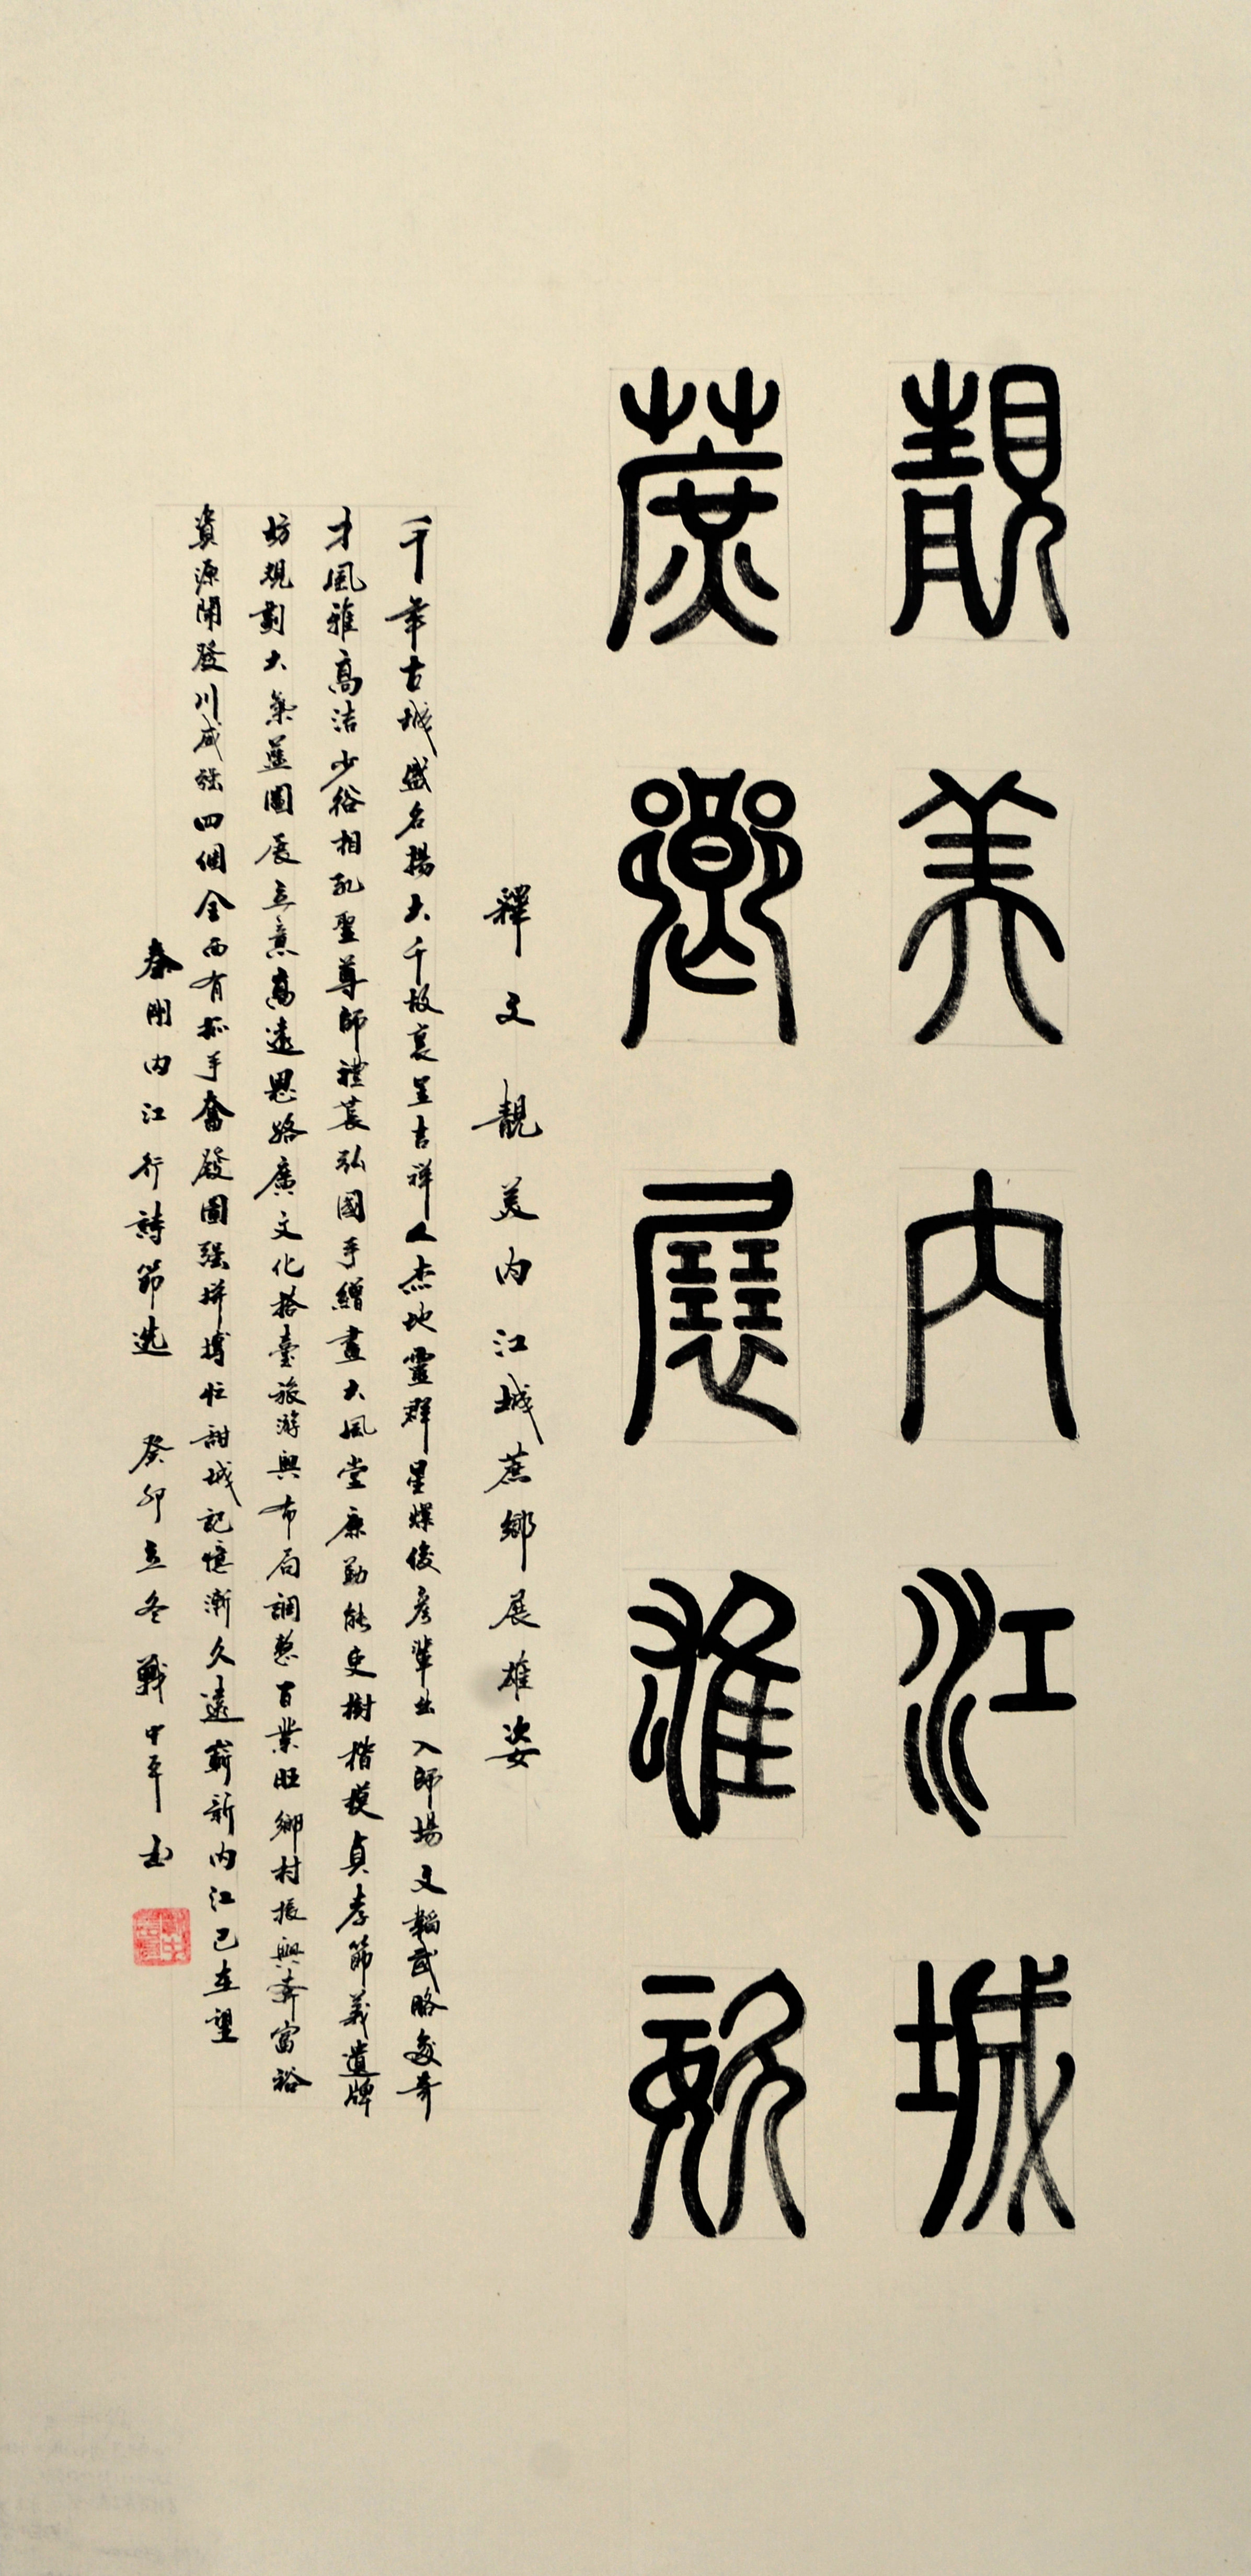 靚美内江城
蔗鄉展雄姿
釋文靚美内江城蔗鄉展雄姿
千年古城盛名揚大千故裏呈吉祥人杰地靈群星燦俊彦輩出入師場文韜武略多奇
才風雅高洁少俗相孔聖尊師禮萇弘國手繒畫大風堂廉勤能吏樹楷模貞孝節義遺牌
坊規劃大氣藍圖展立意高遠思路廣文化搭臺旅游興布局調整百業旺鄉村振興奔富裕
資源開發川威強四個全面有抓手奮發圖强拼搏忙甜城記憶漸久遠嶄新内江已在望
秦剛内江行詩節选 癸卯立冬戰中平書